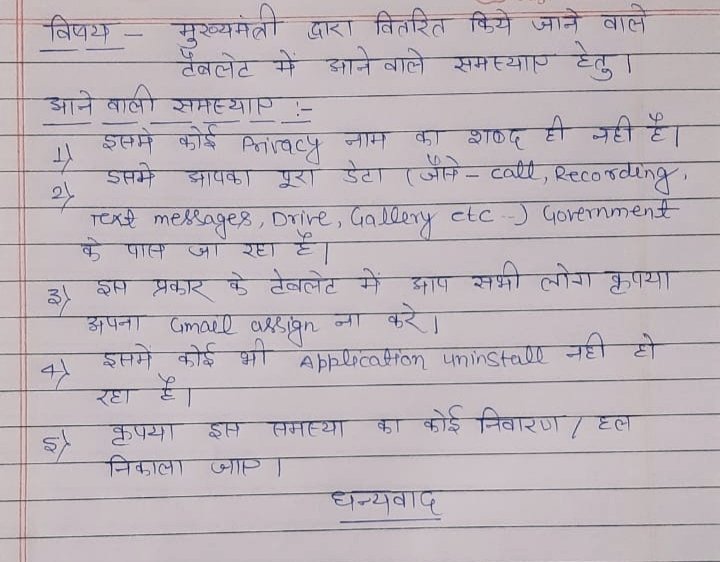 विषय - मुख्यमंत्री द्वारा वितरित किये जाने वाले
टैबलेट में आने वाले समस्याए हेतु।
आने वाली समस्याए :-
1) इसमे कोई Privacy नाम का शब्द ही नही है।
2) इसमे आपका पूरा डेटा (जैसे - call, Recording,
Text messages, Drive, Gallery etc --) Government
के पास जा रहा है।
3) इस प्रकार के टेबलेट में आप सभी लोग कृपया
अपना Gmail assign ना करे।
4) इसमे कोई भी Application uninstall नही हो
रहा है।
5) कृपया इस समस्या का कोई निवारण / हल
निकाला जाए।
धन्यवाद